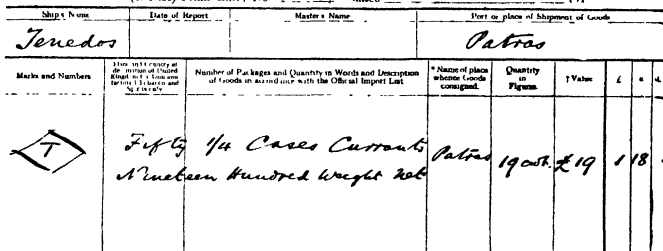 Ship's Name Date of Report Master's Name Port or place of Shipment of Goods
Tenedos Patras
Marks and Numbers
Number of Packages and Quantity in Words and Description of Goods in accordance with the Official Import List
* Name of place whence Goods consigned.
Quantity in Figures.
† Value £ s. d.
T
Fifty 1/4 Cases Currants Patras 19 cwt. £19 1 18
Nineteen Hundred Weight Net